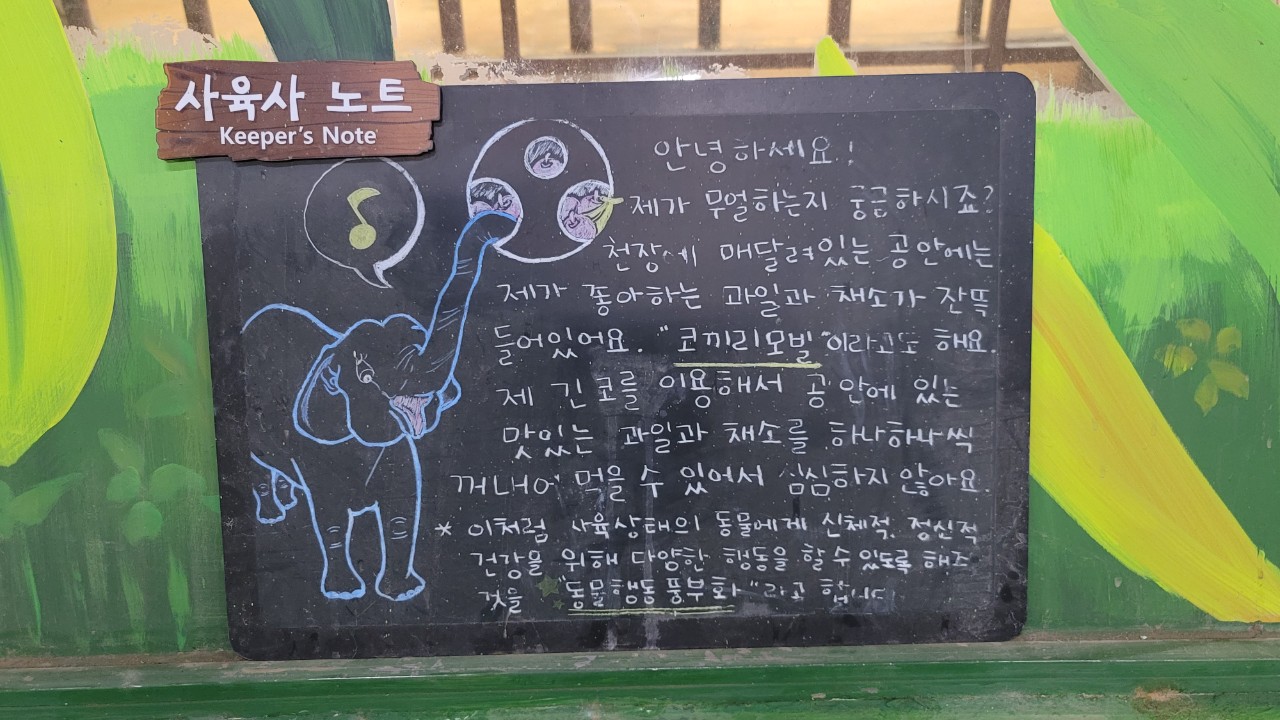 사육사 노트
Keeper's Note
안녕하세요!
제가 무얼하는지 궁금하시죠?
천장에 매달려있는 공 안에는
제가 좋아하는 과일과 채소가 잔뜩
들어있어요. "코끼리모빌"이라고도 해요.
제 긴 코를 이용해서 공 안에 있는
맛있는 과일과 채소를 하나하나씩
꺼내어 먹을 수 있어서 심심하지 않아요.
* 이처럼 사육상태의 동물에게 신체적, 정신적
건강을 위해 다양한 행동을 할 수 있도록 해주
것을 "동물행동 풍부화"라고 합니다